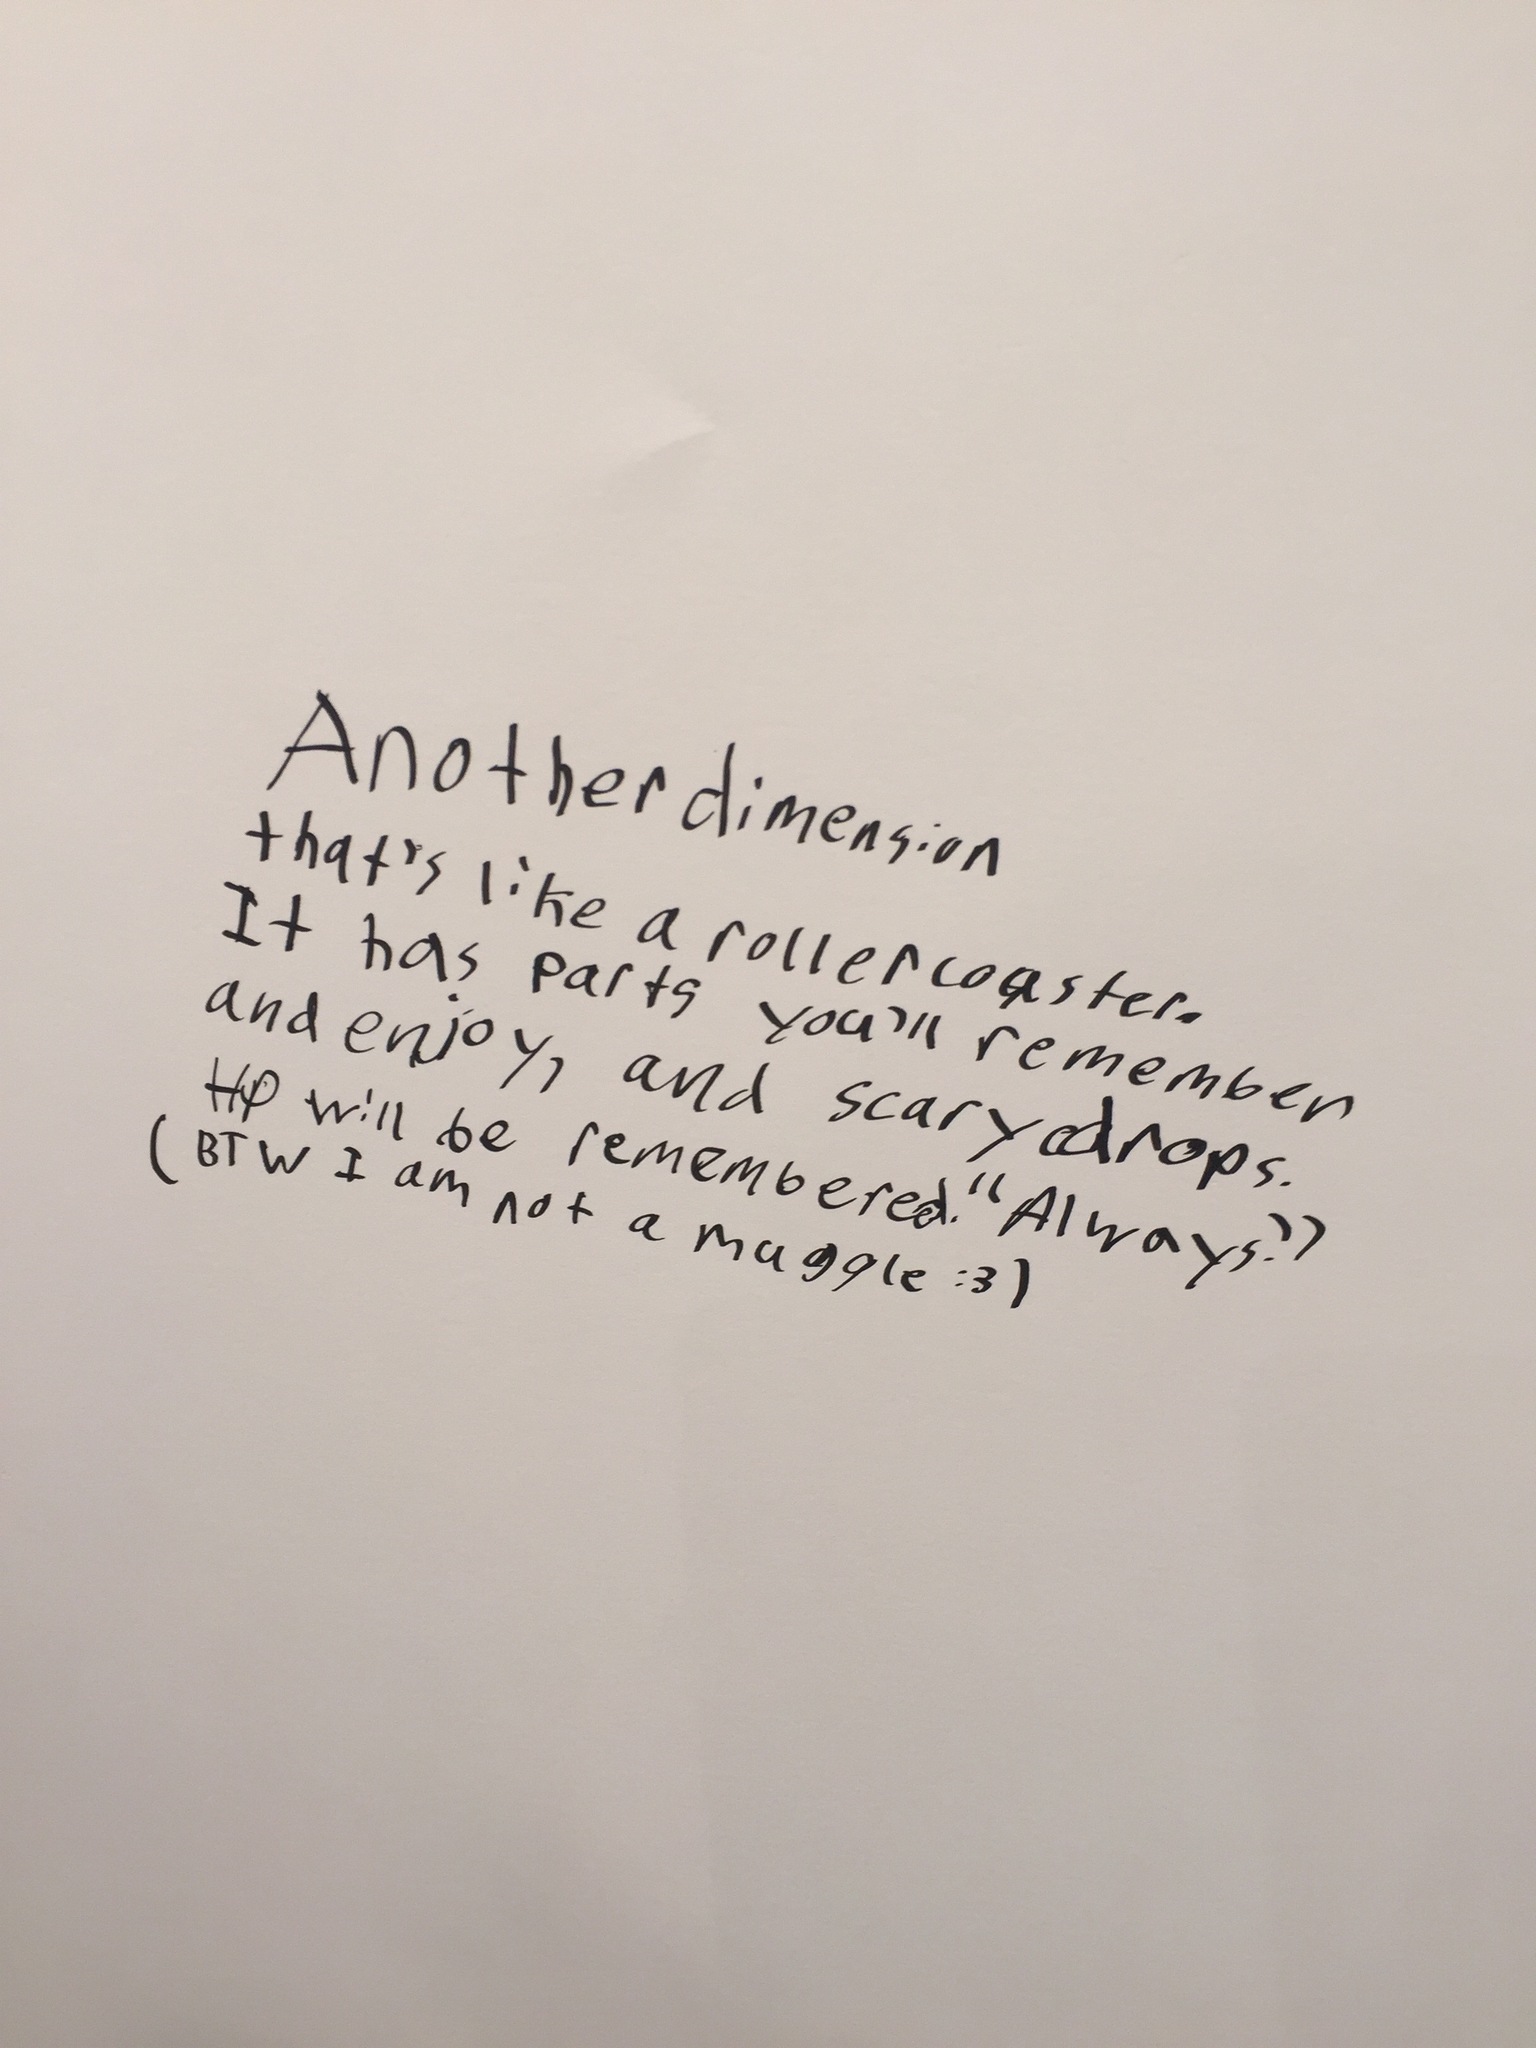 Another dimension
that's like a rollercoaster.
It has parts you'll remember
and enjoy, and scary drops.
HP will be remembered. "Always."
(BTW I am not a muggle :3)